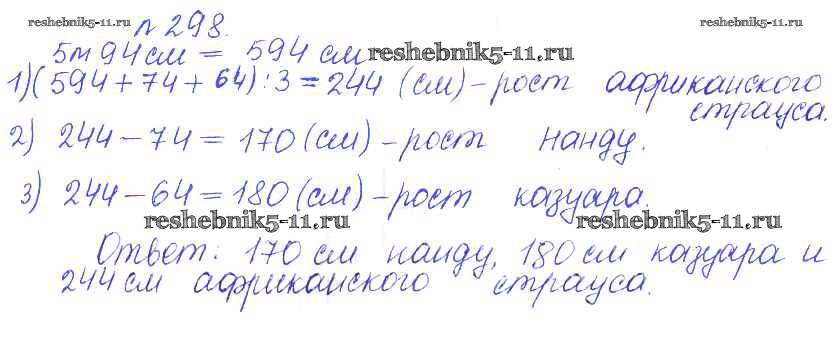 reshebnik5-11.ru № 298. reshebnik5-11.ru
5м 94 см = 594 см reshebnik5-11.ru
1) (594 + 74 + 64) : 3 = 244 (см) – рост африканского
страуса.
2) 244 – 74 = 170 (см) – рост нанду.
3) 244 – 64 = 180 (см) – рост казуара.
reshebnik5-11.ru reshebnik5-11.ru
Ответ: 170 см нанду, 180 см казуара и
244 см африканского страуса.